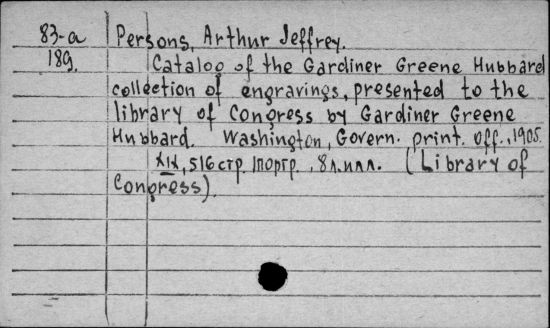 83-a Persons, Arthur Jeffrey.
189. Catalog of the Gardiner Greene Hubbard
collection of engravings, presented to the
library of Congress by Gardiner Greene
Hubbard. Washington, Govern. print. off., 1905.
XIX, 516 стр. 1 портр., 8 л. илл. (Library of
Congress).